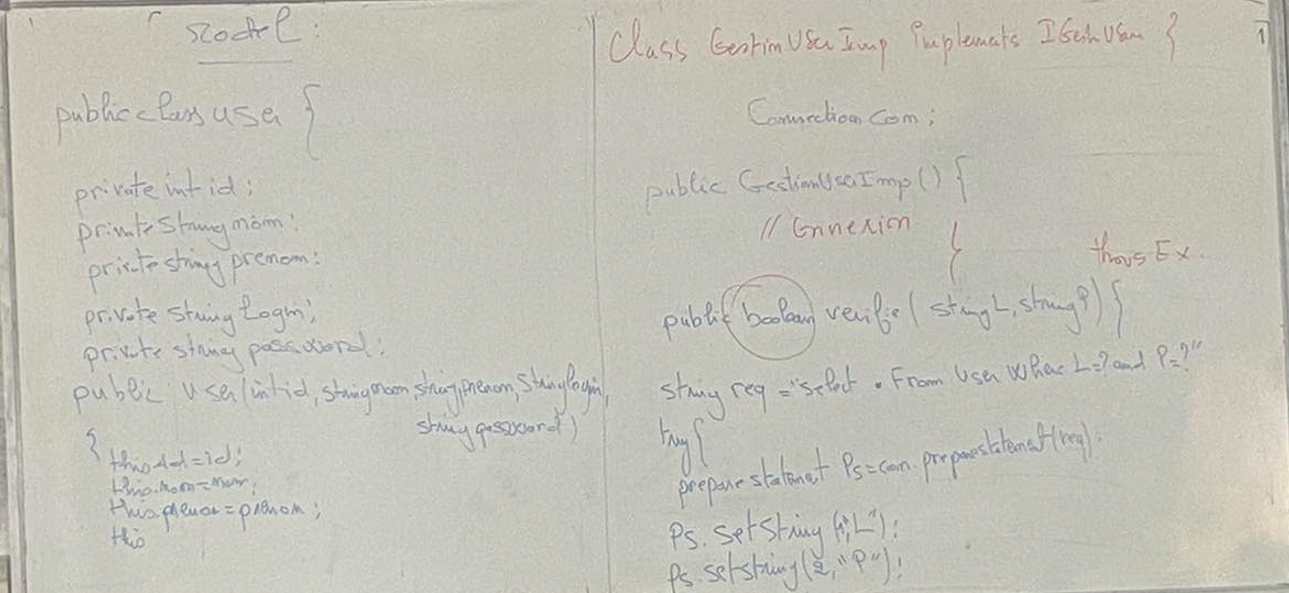 Model :
public class user {
private int id ;
private String nom ;
private string prenom ;
private string Login ;
private string password ;
public user (int id, string nom, string prenom, String login,
string password)
{
this.id = id ;
this.nom = nom ;
this.prenom = prenom ;
this
Class GestionUserImp implements IGestnUser {
Connection con ;
public GestionUserImp () {
// Connexion
}
throws Ex.
public boolean verifie ( string L, string P) {
string req = "select * From User Where L=? and P=?"
try {
prepare statemet Ps = con. prepare statemet (req) ;
Ps. setString (1, "L") ;
Ps. setstring (2, "P") ;